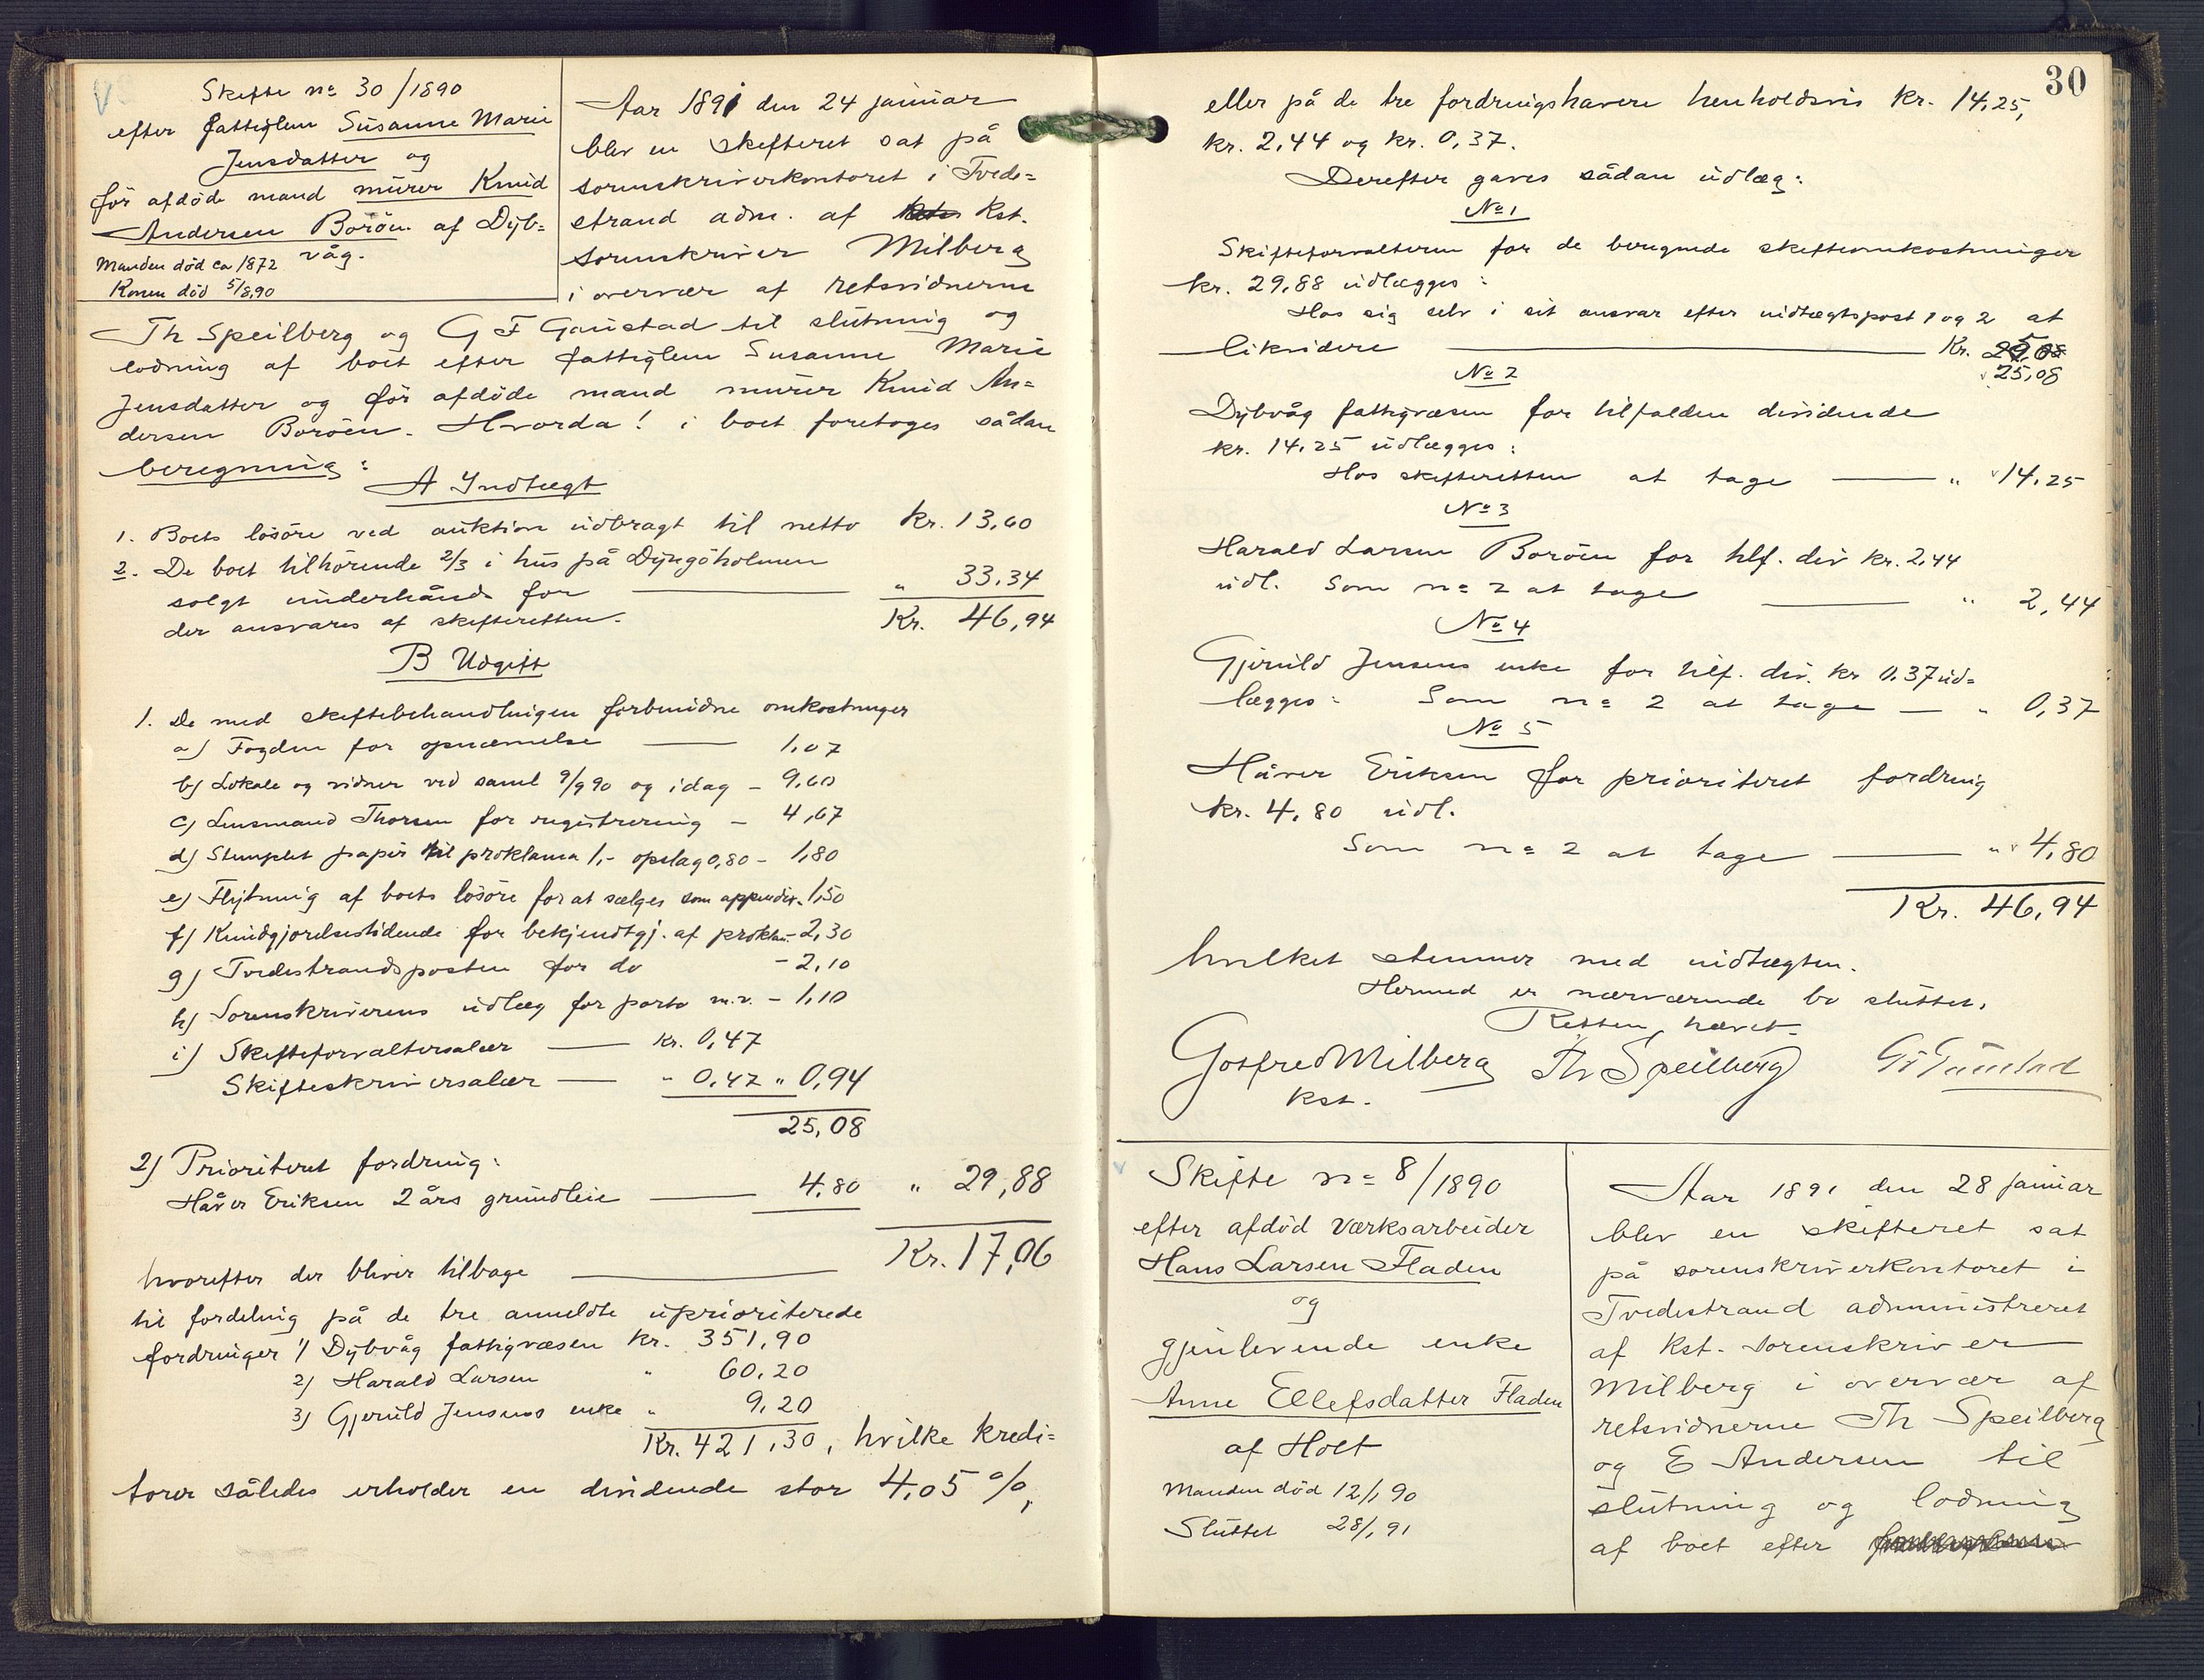 Skifte nº 30/1890
efter fattiglem Susanne Marie
Jensdatter og
før afdøde mand murer Knud
Andersen Borøen af Dyb=
våg.
Manden død ca 1872
Konen død 5/8 90
Aar 1891 den 24 januar
blev en skifteret sat på
sorenskriverkontoret i Tvede=
strand adm. af Kst.
sorenskriver Milberg
i overvær af retsvidnerne
Th Speilberg og G F Gaustad til slutning og
lodning af boet efter fattiglem Susanne Marie
Jensdatter og før afdøde mand murer Knud An=
dersen Borøen. Hvorda! i boet foretoges sådan
beregning:
A Indtægt
1. Boets løsøre ved auktion udbragt til netto Kr. 13,60
2. De boet tilhørende 2/3 i hus på Dyngöholmen
solgt underhånds for " 33,34
der ansvares af skifteretten. Kr. 46,94
B Udgift
1. De med skiftebehandlingen forbundne omkostninger
a) Fogden for opnævnelse 1,07
b) Lokale og vidner ved saml 9/9 90 og idag - 9,60
c) Lensmand Thorsen for registrering - 4,67
d) Stemplet papir til proklama 1,- opslag 0,80 - 1,80
e) Flytning af boets løsøre for at sælges som appendix - 1,50
f) Kundgjørelsestidende for bekjendtgj. af proklam - 2,30
g) Tvedestrandsposten for do - 2,10
h) Sorenskriverens udlæg for porto m.v. - 1,10
i) Skifteforvaltersalær Kr. 0,47
Skifteskriversalær " 0,47 " 0,94
25,08
2) Prioriteret fordring:
Håver Eriksen 2 års grundleie 4,80 " 29,88
hvorefter der bliver tilbage Kr. 17,06
til fordeling på de tre anmeldte uprioriterede
fordringer 1) Dybvåg fattigvæsen Kr. 351,90
2) Harald Larsen " 60,20
3) Gjeruld Jensens enke " 9,20
Kr. 421,30, hvilke kredi=
torer således erholder en dividende stor 4,05 %,
30
eller på de tre fordringshavere henholdsvis Kr. 14,25,
Kr. 2,44 og Kr. 0,37.
Derefter gaves sådan udlæg:
Nº 1
Skifteforvalteren for de beregnede skifteomkostninger
Kr. 29,88 udlægges:
Hos sig selv i sit ansvar efter indtægtspost 1 og 2 at
likvidere Kr. 25,08
25,08
Nº 2
Dybvåg fattigvæsen for tilfalden dividende
Kr. 14,25 udlægges:
Hos skifteretten at tage " 14,25
Nº 3
Harald Larsen Borøen for tilf. div Kr. 2,44
udl. Som nº 2 at tage " 2,44
Nº 4
Gjeruld Jensens enke for tilf. div. Kr 0.37 ud=
lægges: Som nº 2 at tage - " 0,37
Nº 5
Håver Eriksen for prioriteret fordring
Kr. 4,80 udl.
Som nº 2 at tage " 4,80
Kr. 46,94
hvilket stemmer med indtægten.
Hermed er nærværende bo sluttet.
Retten hævet.
Gotfred Milberg Th Speilberg G F Gaustad
Kst.
Skifte nº 8/1890
efter afdød Værksarbeider
Hans Larsen Fladen
og
gjenlevende enke
Anne Ellefsdatter Fladen
af Holt
Manden død 12/1 90
Sluttet 28/1 91
Aar 1891 den 28 januar
blev en skifteret sat
på sorenskriverkontoret i
Tvedestrand administreret
af Kst. sorenskriver
Milberg i overvær af
retsvidnerne Th Speilberg
og E Andersen til
slutning og lodning
af boet efter